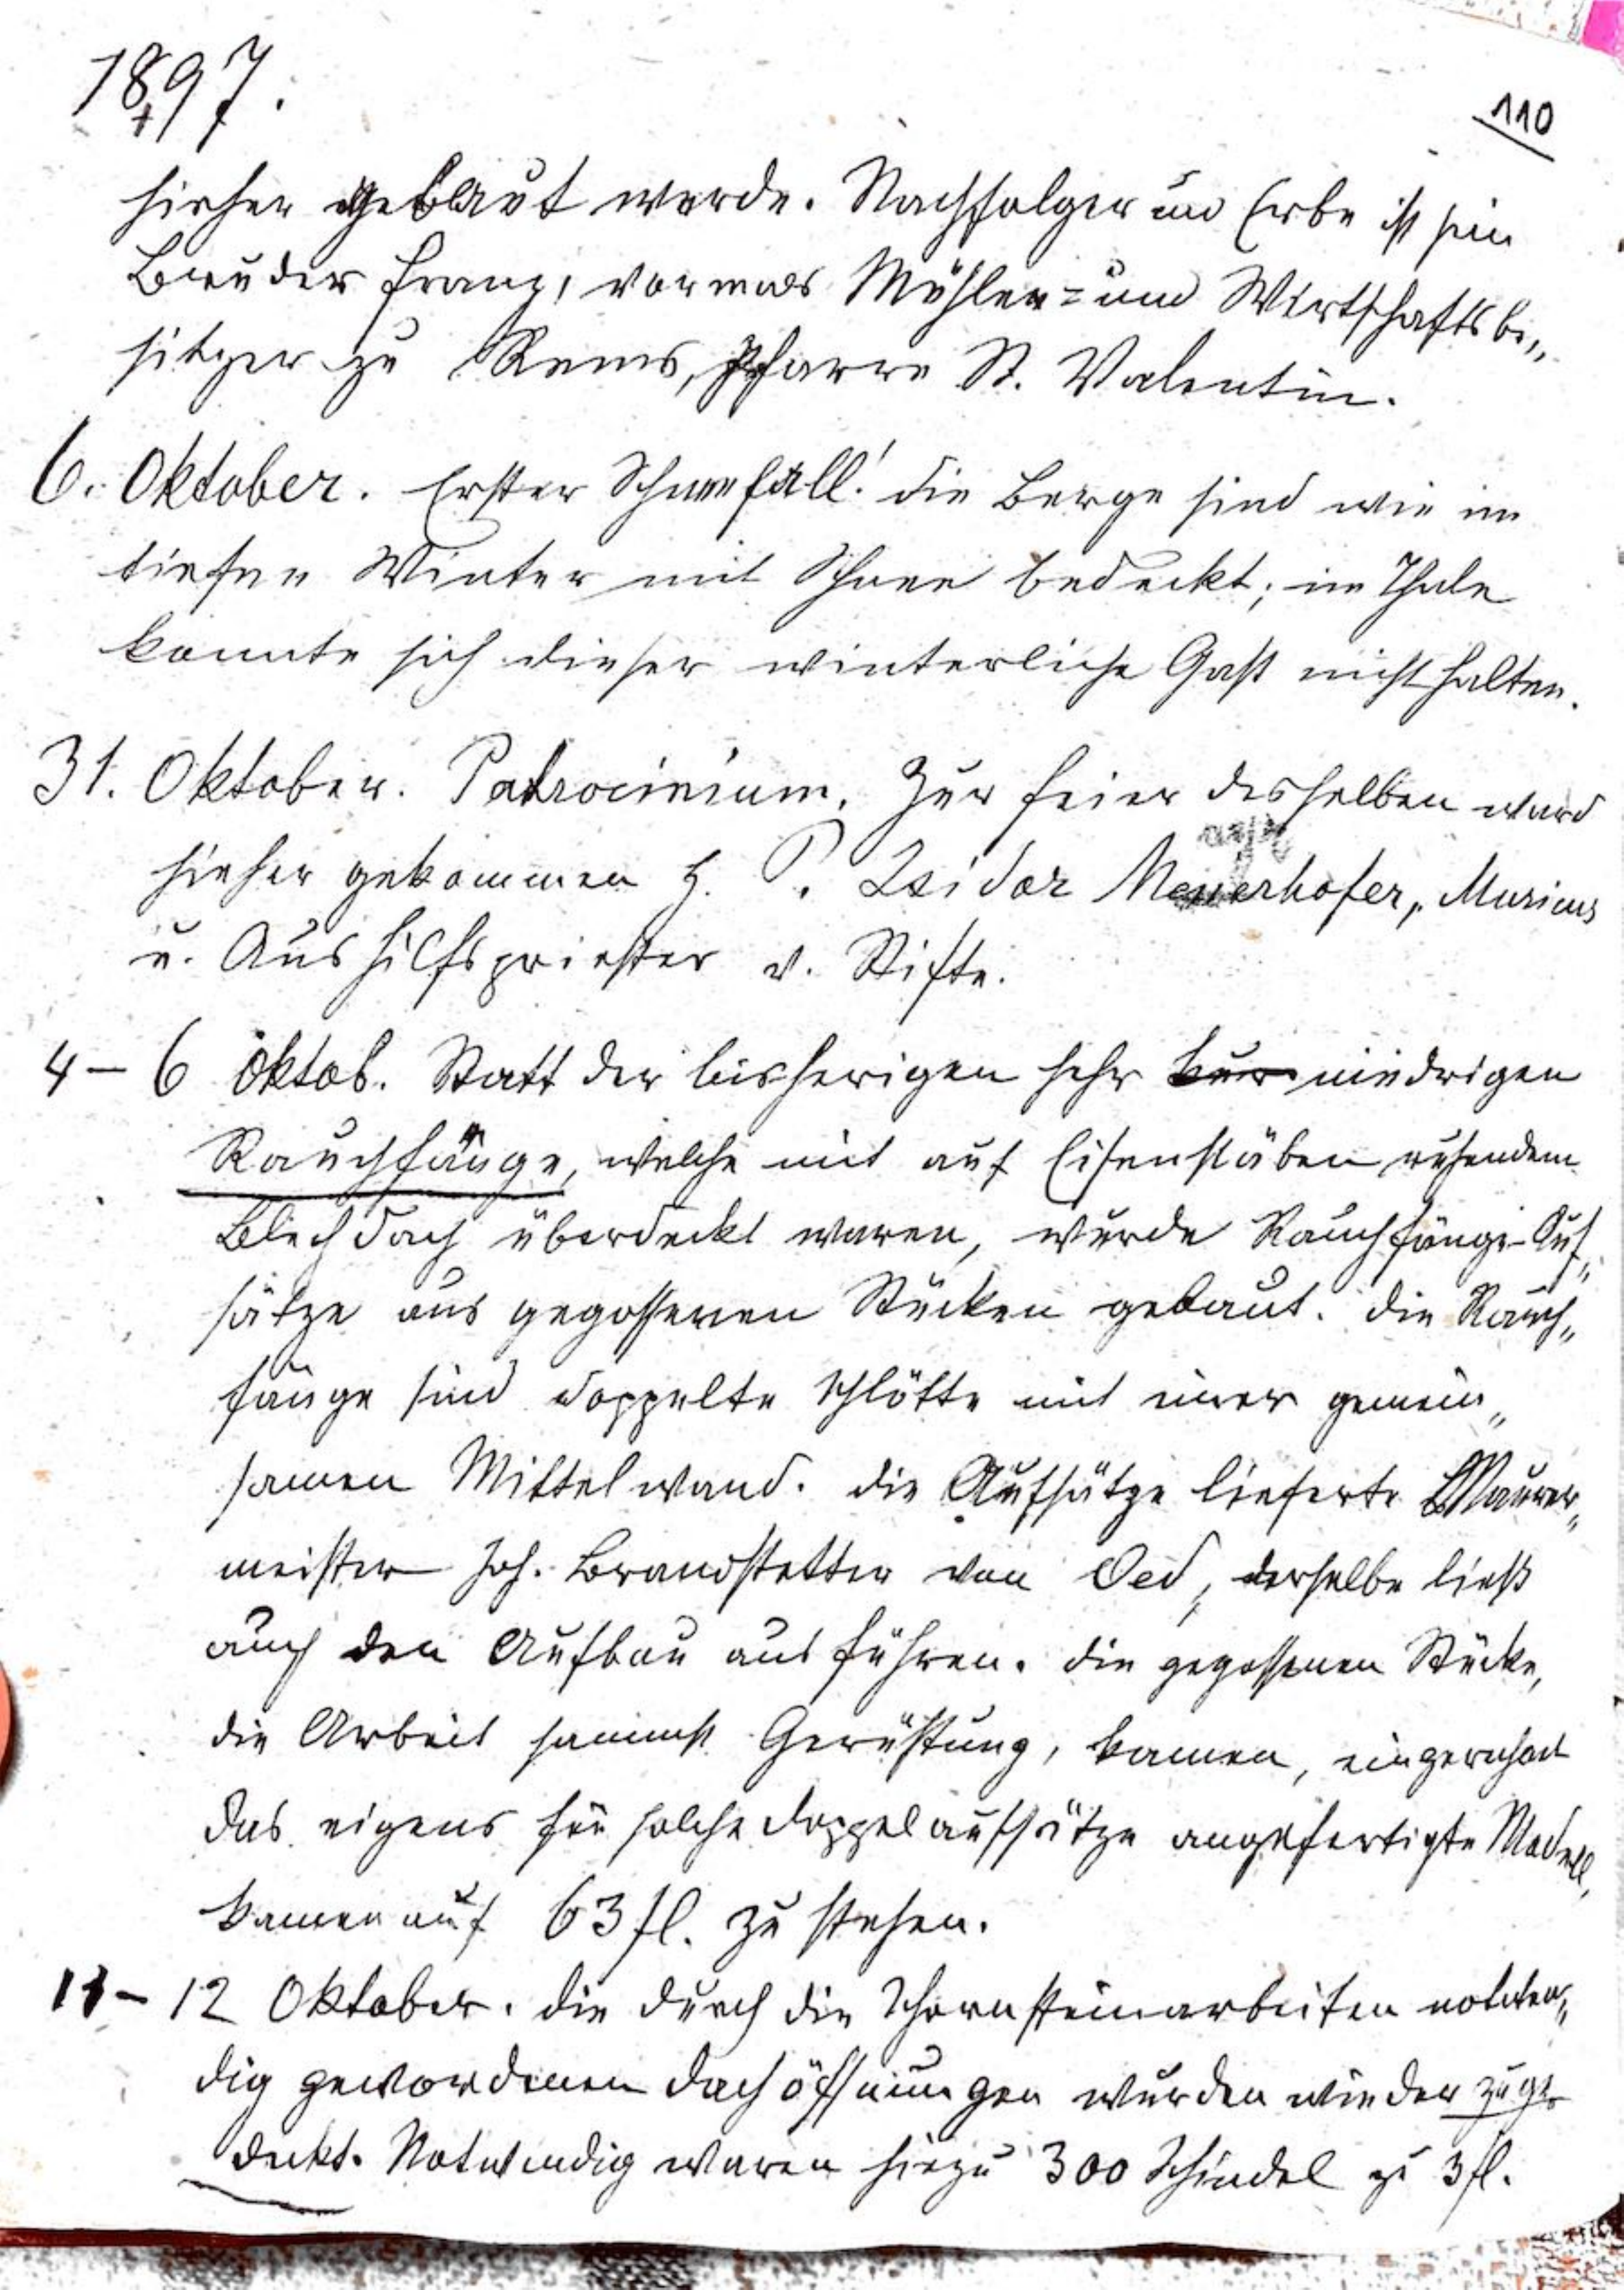 1897.
110
hieher gebaut werde. Nachfolger und Erbe ist sein
Bruder Franz, vormals Mühlen= und Wirtschaftsbe„
sitzer zu Rems, Pfarre St. Valentin.
6. Oktober. Erster Schneefall! die Berge sind wie im
tiefen Winter mit Schnee bedeckt; im Thale
konnte sich dieser winterliche Gast nicht halten.
31. Oktober. Patrocinium. Zur Feier desselben ward
hieher gekommen H. P. Isidor Meyerhofer, Musicus
u. Aushilfspriester v. Stifte.
4 – 6 Oktob. Statt der bisherigen sehr kur niedrigen
Rauchfänge, welche mit auf Eisenstäben ruhendem
Blechdach überdeckt waren, wurde Rauchfänge-Auf„
sätze aus gegossenen Stücken gebaut. die Rauch„
fänge sind doppelte Schlötte mit einer gemein„
samen Mittelwand. die Aufsätze lieferte Maurer„
meister Joh. Brandstetter von Oed, derselbe ließ
auch den Aufbau ausführen. die gegossenen Stücke,
die Arbeit sammt Gerüstung, kamen, eingerechnet
das eigens für solche Doppelaufsätze angefertigte Modell,
kamen auf 63 fl. zu stehen.
11 – 12 Oktober. die durch die Schornsteinarbeiten nothwen„
dig gewordenen Dachöffnungen wurden wieder zuge
deckt. Notwendig waren hiezu 300 Schindel zu 3 fl.